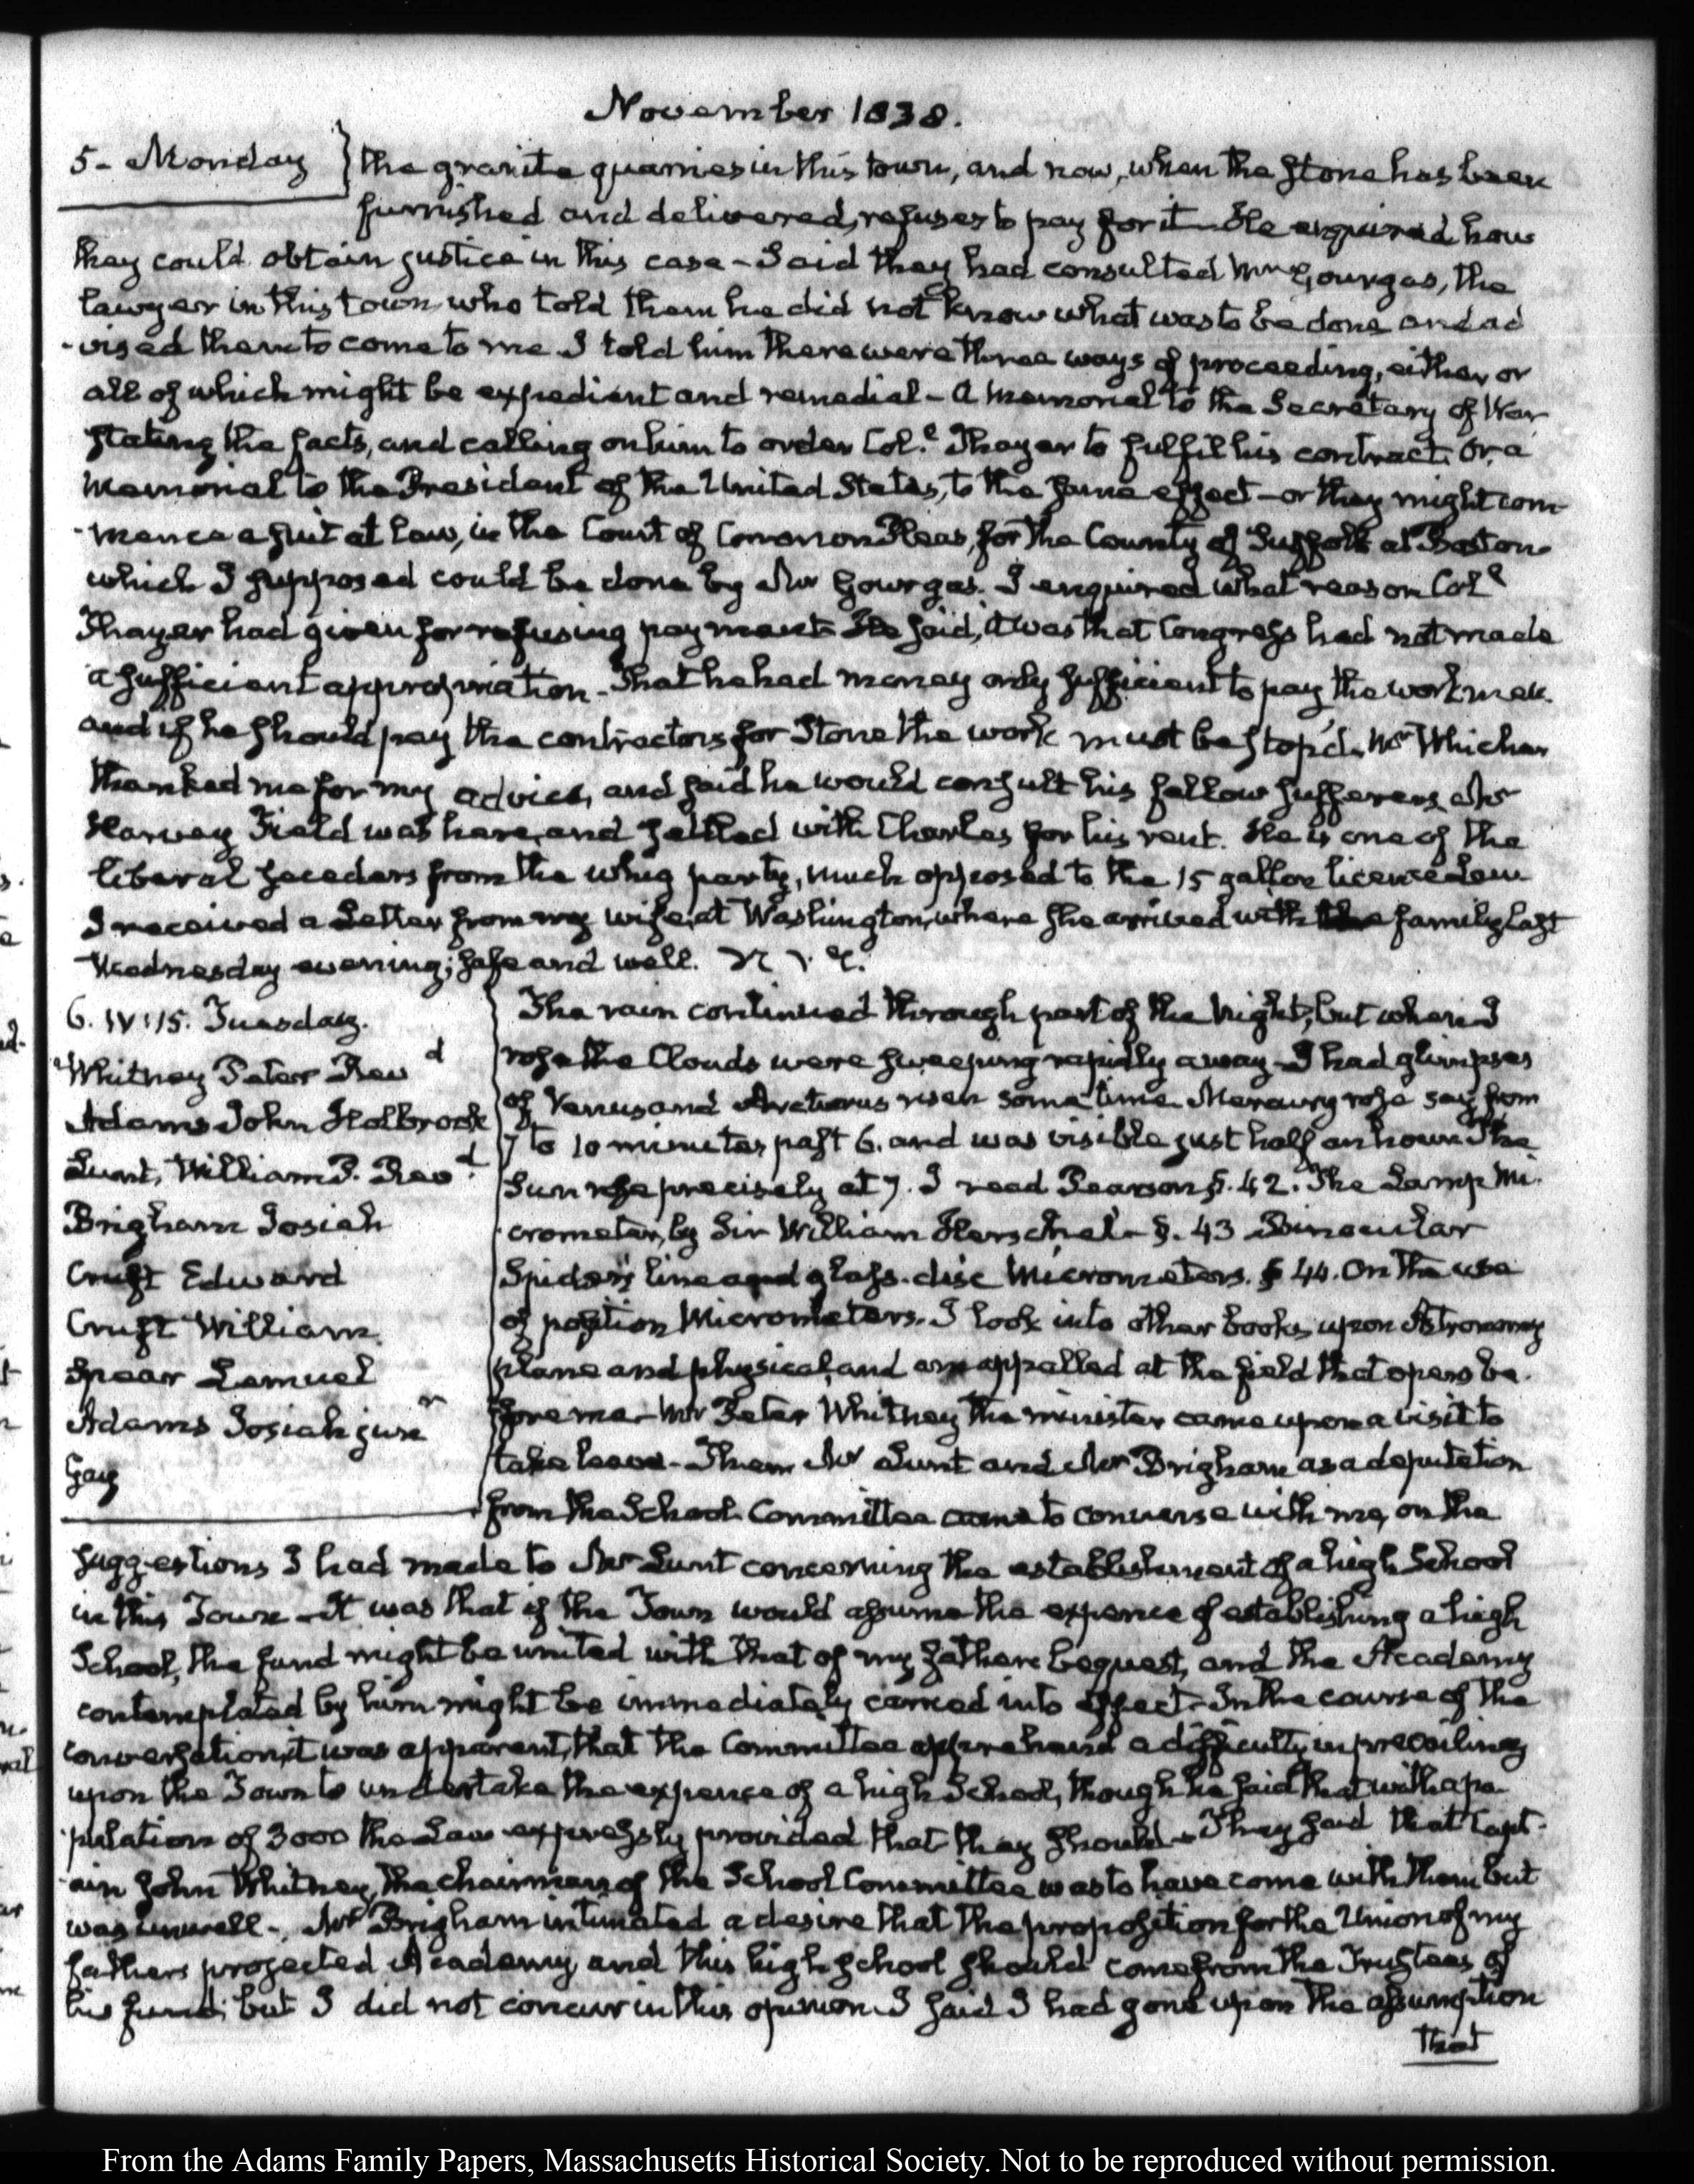 November 1838.
5- Monday
the granite quarries in this town, and now, when the Stone has been
furnished and delivered, refuses to pay for it - He enquired how
they could obtain justice in this case - Said they had consulted Mr Gourgas, the
lawyer in this town who told them he did not know what was to be done and ad
-vised them to come to me I told him there were three ways of proceeding, either or
all of which might be expedient and remedial - A Memorial to the Secretary of War
stating the facts, and calling on him to order Col.l Thayer to fulfil his contract. Or a
Memorial to the President of the United States, to the same effect - or they might com-
-mence a suit at Law, in the Court of Common Pleas, for the County of Suffolk at Boston
which I supposed could be done by Mr Gourgas. I enquired what reason Coll
Thayer had given for refusing payment He said, it was that Congress had not made
a sufficient appropriation - That he had money only sufficient to pay the workmen.
and if he should pay the contractors for Stone the work must be stop'd. Mr Whicher
thanked me for my advice, and said he would consult his fellow sufferers. Mr
Harvey Field was here, and settled with Charles for his rent. He is one of the
liberal seceders from the whig party, much opposed to the 15 gallon licence Law
I received a Letter from my wife, at Washington, where she arrived with the family last
Wednesday evening; safe and well.
6. IV:15. Tuesday.
Whitney Peter Revd
Adams John Holbrook
Lunt, William P. Revd.
Brigham Josiah
Cruft Edward
Cruft William
Spear Lemuel
Adams Josiah junr
Gay
The rain continued through part of the night, but when I
rose the Clouds were sweeping rapidly away - I had glimpses
of Venus and Arcturus risen some time. Mercury rose say from
7 to 10 minutes past 6. and was visible just half an hour The
Sun rose precisely at 7. I read Pearson §. 42. The Lamp Mi-
crometer, by Sir William Herschel - §. 43 Binocular
Spider's line and glass-disc Micrometers. § 44. On the use
of position Micrometers. I look into other books upon Astronomy
plane and physical, and am appalled at the field that opens be-
fore me - Mr Peter Whitney the minister came upon a visit to
take leave - Then Mr Lunt and Mr Brigham as a deputation
from the School Committee came to converse with me, on the
suggestions I had made to Mr Lunt concerning the establishment of a high School
in this Town - It was that if the Town would assume the expence of establishing a high
School, the fund might be united with that of my fathers bequest, and the Academy
contemplated by him might be immediately carried into effect - In the course of the
conversation, it was apparent, that the Committee apprehend a difficulty in prevailing
upon the Town to undertake the expence of a high School, though he said that with a po-
pulation of 3000 the Law expressly provided that they should - They said that Capt-
ain John Whitney, the chairman of the School Committee was to have come with them but
was unwell - Mr Brigham intimated a desire that the proposition for the Union of my
fathers projected Academy and this high school should come from the Trustees of
his fund; but I did not concur in this opinion. I said I had gone upon the assumption
that
From the Adams Family Papers, Massachusetts Historical Society. Not to be reproduced without permission.